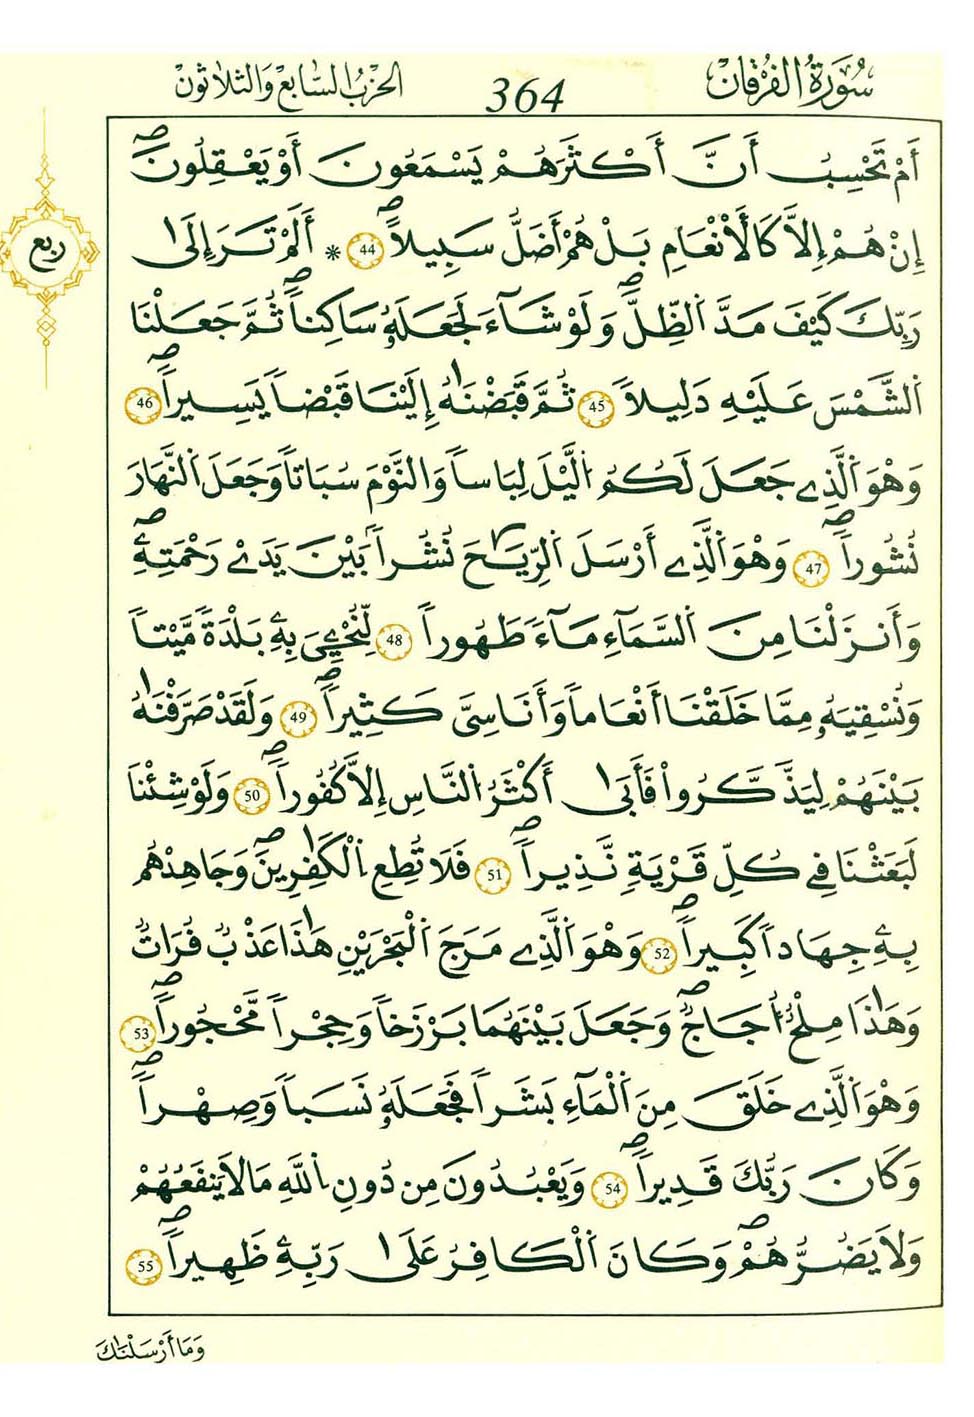 سُورَةُ الْفُرْقَانِ 364 الحِزْبُ السَّابِعُ وَالثَّلَاثُونَ
أَمْ تَحْسِبُ أَنَّ أَكْثَرَهُمْ يَسْمَعُونَ أَوْ يَعْقِلُونَۖ
إِنْ هُمْ إِلاَّ كَالاَنْعَامِ بَلْ هُمْ أَضَلُّ سَبِيلاًۖ 44 * أَلَمْ تَرَ إِلَىٰ
ربع
رَبِّكَ كَيْفَ مَدَّ اَلظِّلَّۖ وَلَوْ شَآءَ لَجَعَلَهُۥ سَاكِناًۖ ثُمَّ جَعَلْنَا
اَلشَّمْسَ عَلَيْهِ دَلِيلاً 45 ثُمَّ قَبَضْنَٰهُ إِلَيْنَا قَبْضاً يَسِيراًۖ 46
وَهُوَ اَلَّذِے جَعَلَ لَكُمُ اُلَّيْلَ لِبَاساً وَالنَّوْمَ سُبَاتاً وَجَعَلَ اَلنَّهَارَ
نُشُوراًۖ 47 وَهُوَ اَلَّذِے أَرْسَلَ اَلرِّيَٰحَ نُشُراَۢ بَيْنَ يَدَےْ رَحْمَتِهِۦۖ
وَأَنزَلْنَا مِنَ اَلسَّمَآءِ مَآءً طَهُوراً 48 لِّنُحْۧيِيَ بِهِۦ بَلْدَةً مَّيْتاً
وَنُسْقِيَهُۥ مِمَّا خَلَقْنَا أَنْعَاماً وَأَنَاسِيَّ كَثِيراًۖ 49 وَلَقَدْ صَرَّفْنَٰهُ
بَيْنَهُمْ لِيَذَّكَّرُواْ فَأَبَىٰ أَكْثَرُ اُلنَّاسِ إِلاَّ كُفُوراًۖ 50 وَلَوْ شِئْنَا
لَبَعَثْنَا فِے كُلِّ قَرْيَةٍ نَّذِيراًۖ 51 فَلَا تُطِعِ اِلْكَٰفِرِينَۖ وَجَاهِدْهُم
بِهِۦ جِهَاداً كَبِيراًۖ 52 وَهُوَ اَلَّذِے مَرَجَ اَلْبَحْرَيْنِ هَٰذَا عَذْبٌ فُرَاتٌ
وَهَٰذَا مِلْحٌ اُجَاجٌۖ وَجَعَلَ بَيْنَهُمَا بَرْزَخاً وَحِجْراً مَّحْجُوراًۖ 53
وَهُوَ اَلَّذِے خَلَقَ مِنَ اَلْمَآءِ بَشَراً فَجَعَلَهُۥ نَسَباً وَصِهْراًۖ
وَكَانَ رَبُّكَ قَدِيراًۖ 54 وَيَعْبُدُونَ مِن دُونِ اِللَّهِ مَا لاَ يَنفَعُهُمْ
وَلاَ يَضُرُّهُمْۖ وَكَانَ اَلْكَافِرُ عَلَىٰ رَبِّهِۦ ظَهِيراًۖ 55
وَمَا أَرْسَلْنَٰكَ